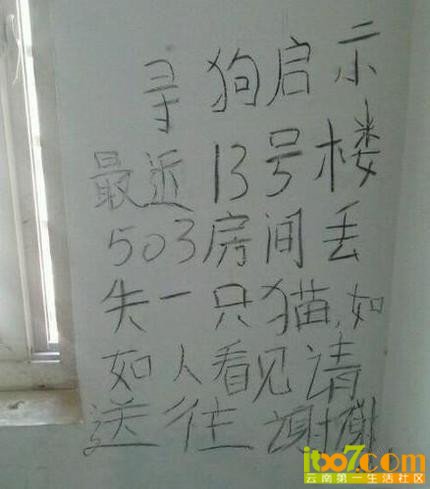 寻狗启示
最近13号楼
503房间丢
失一只猫,如
如人看见请
送往谢谢
itbo7com
云南第一生活社区